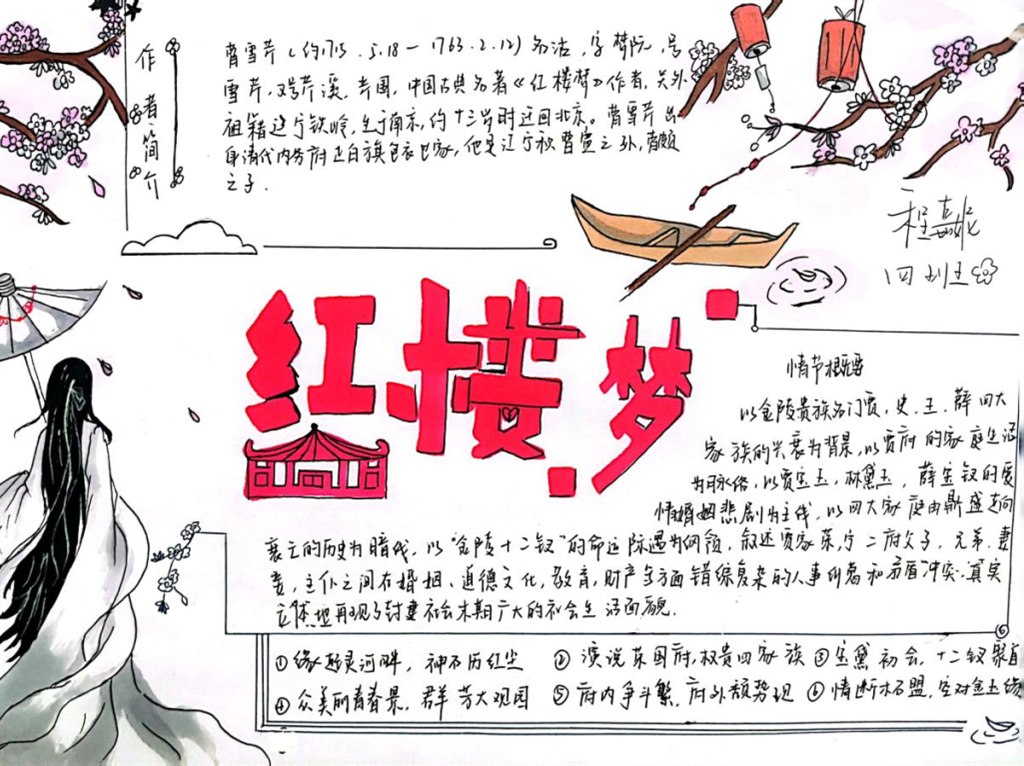 作者简介
曹雪芹(约1715.5.18—1763.2.12)名沾,字梦阮,号
雪芹,又号芹溪、芹圃,中国古典名著《红楼梦》作者,关外
祖籍辽宁铁岭,生于南京,约十三岁时迁回北京。曹雪芹出
身清代内务府正白旗包衣世家,他是江宁织曹寅之孙,曹頫
之子.
四 5
红楼梦
情节概要
以金陵贵族名门贾,史.王.薛四大
家族的兴衰为背景,以贾府的家庭生活
为脉络,以贾宝玉,林黛玉,薛宝钗的爱
情婚姻悲剧为主线,以四大家庭由鼎盛走向
衰亡的历史为暗线,以“金陵十二钗”的命运际遇为纲领,叙述贾家荣,宁二府父子,兄弟,妻
妾,主仆之间在婚姻、道德文化,教育,财产多方面错综复杂的人事纠葛和矛盾冲突,真实
立体地再现了封建社会末期广大的社会生活面貌.
①缘起灵河畔,神石历红尘 ②演说荣国府,权贵四家族 ③宝黛初会,十二钗聚首
④众美丽春景,群芳大观园 ⑤府内争斗繁,府外颓势现 ⑥情断木石盟,空对金玉